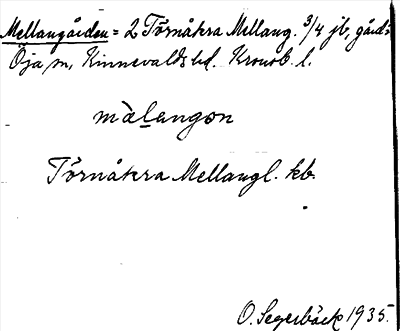 Mellangården = 2 Törnåkra Mellang. 3/4 jb, gård:
Öja sn, Kinnevalds hd. Kronob. l.
màlangon
Törnåkra Mellangl. kb.
O. Segerbäck 1935.